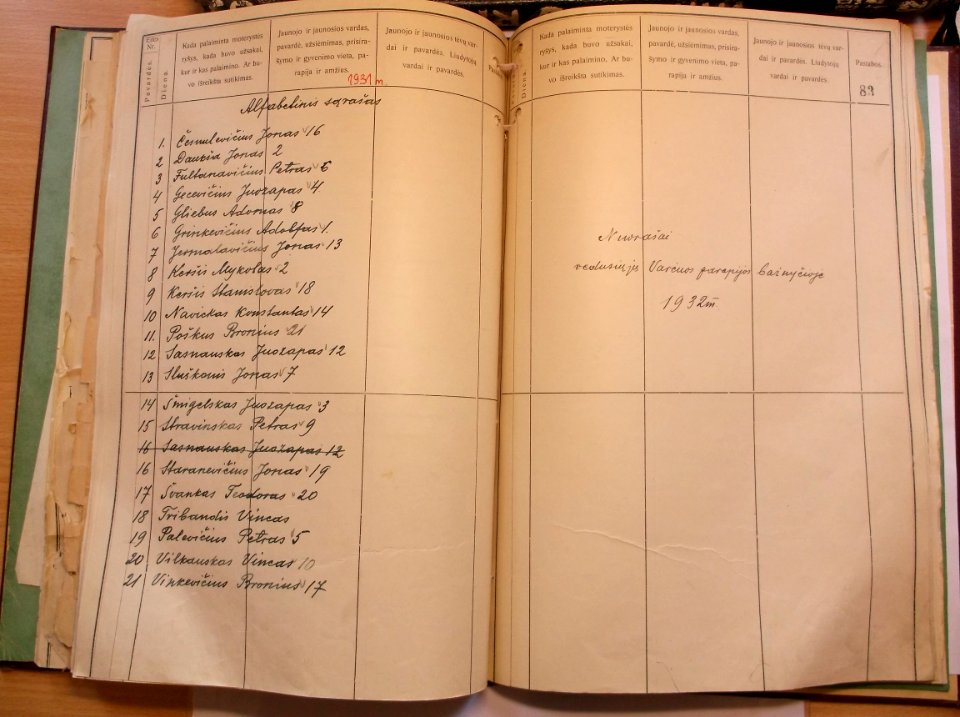 Eilės Nr.
Pavardės.
Diena.
Kada palaiminta moterystės
ryšys, kada buvo užsakai,
kur ir kas palaimino. Ar bu-
vo išreikšta sutikimas.
Jaunojo ir jaunosios vardas,
pavardė, užsiėmimas, prisira-
šymo ir gyvenimo vieta, pa-
rapija ir amžius.
Jaunojo ir jaunosios tėvų var-
dai ir pavardės. Liudytojų
vardai ir pavardės.
1931 m.
Alfabetinis sąrašas
1. Česnulevičius Jonas 16
2 Daukša Jonas 2
3 Fultanavičius Petras 6
4 Gecevičius Juozapas 4
5 Gliebus Adomas 8
6 Grinkevičius Adolfas 1.
7 Jermalavičius Jonas 13
8 Keršis Mykolas 2
9 Keršis Stanislovas 18
10 Navickas Konstantas 14
11. Poškus Bronius 21
12 Sasnauskas Juozapas 12
13 Sluškonis Jonas 7
14 Šmigelskas Juozapas 3
15 Stravinskas Petras 9
16 Sasnauskas Juozapas 12
16 Staranevičius Jonas 19
17 Švankas Teodoras 20
18 Tribandis Vincas
19 Palevičius Petras 5
20 Vilkauskas Vincas 10
21 Vinkevičius Bronius 17
Kada palaiminta moterystės
ryšys, kada buvo užsakai,
kur ir kas palaimino. Ar bu-
vo išreikšta sutikimas.
Jaunojo ir jaunosios vardas,
pavardė, užsiėmimas, prisira-
šymo ir gyvenimo vieta, pa-
rapija ir amžius.
Jaunojo ir jaunosios tėvų var-
dai ir pavardės. Liudytojų
vardai ir pavardės.
Pastabos.
83
Nuorašai
vedusiųjų Varėnos parapijos bažnyčioje
1932 m.